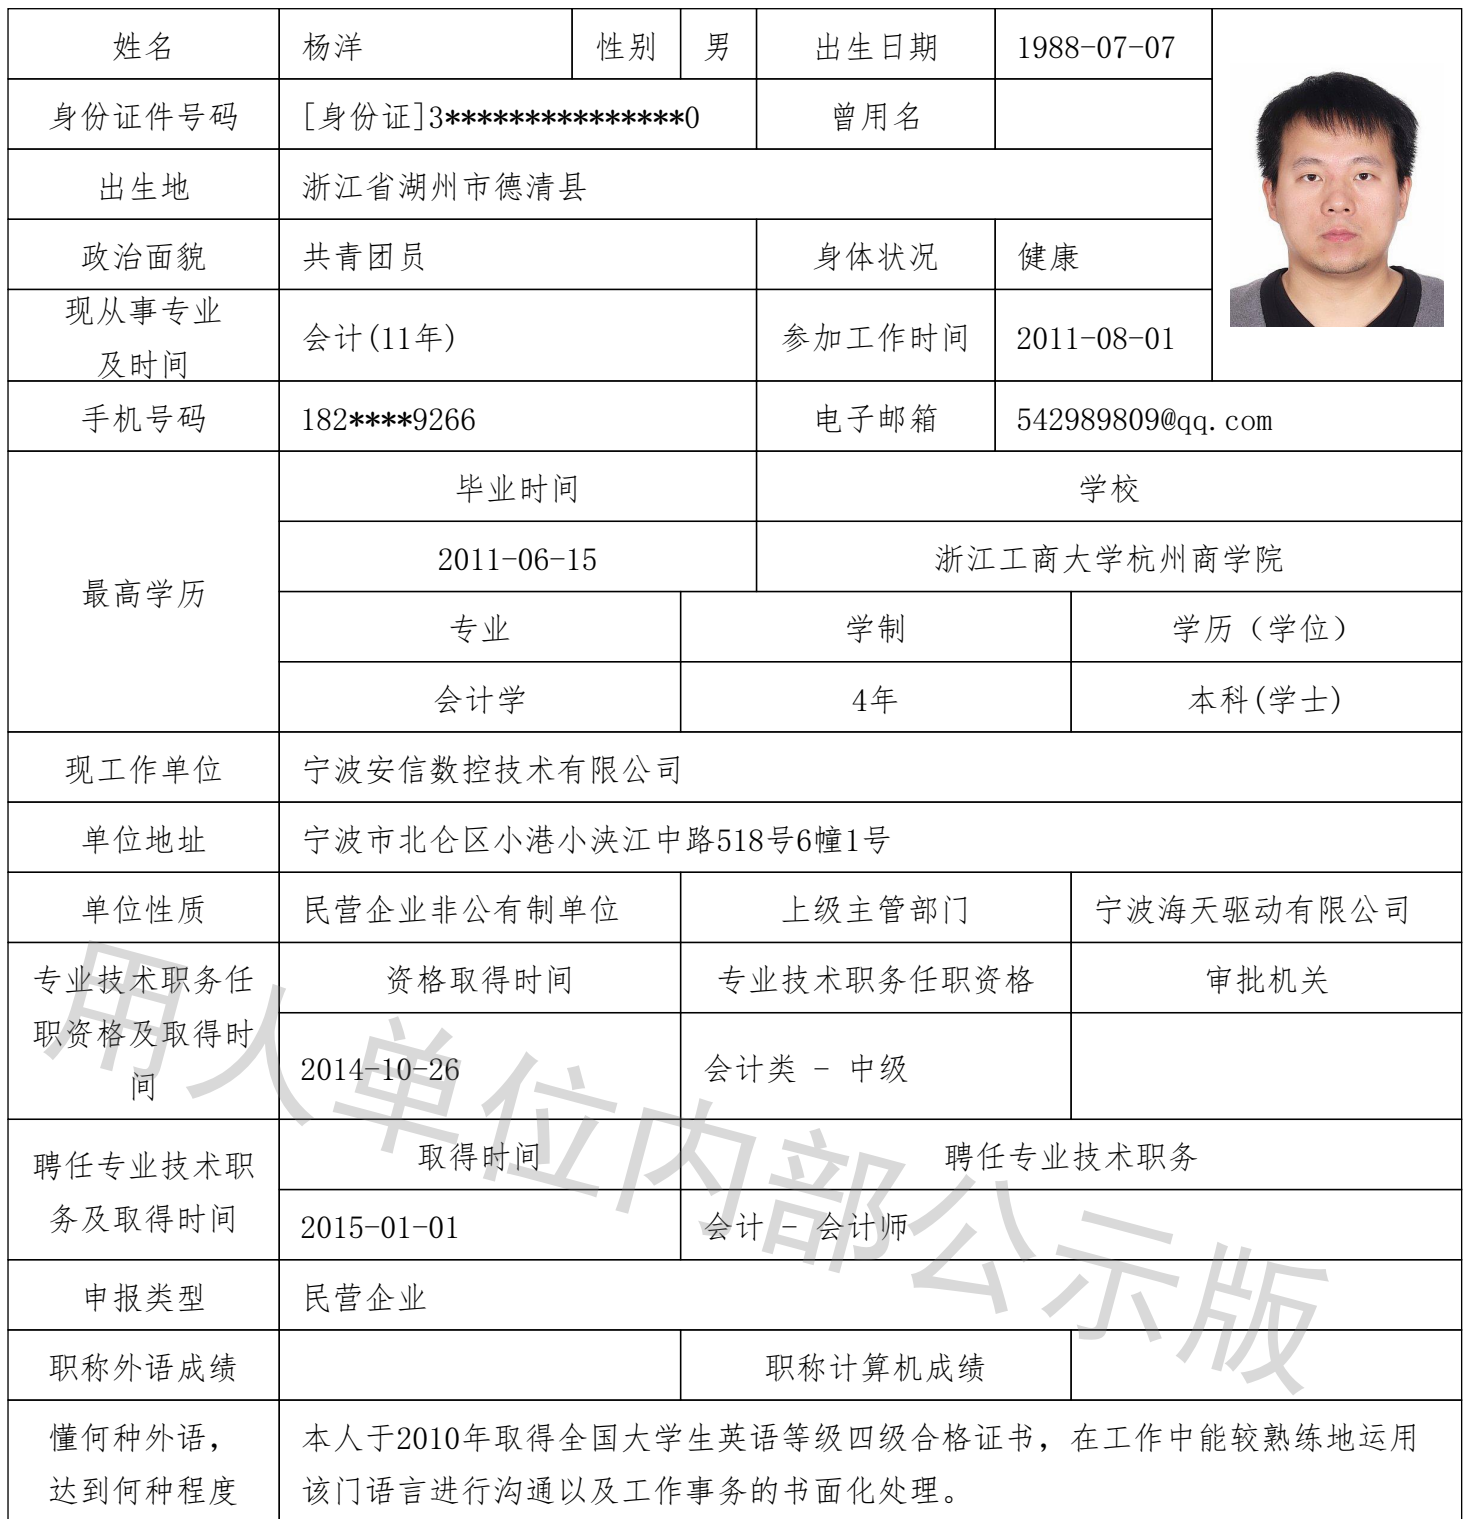 姓名 杨洋 性别 男 出生日期 1988-07-07
身份证件号码 [身份证]3***************0 曾用名
出生地 浙江省湖州市德清县
政治面貌 共青团员 身体状况 健康
现从事专业
及时间
会计(11年) 参加工作时间 2011-08-01
手机号码 182****9266 电子邮箱 542989809@qq.com
最高学历
毕业时间 学校
2011-06-15 浙江工商大学杭州商学院
专业 学制 学历（学位）
会计学 4年 本科(学士)
现工作单位 宁波安信数控技术有限公司
单位地址 宁波市北仑区小港小浃江中路518号6幢1号
单位性质 民营企业非公有制单位 上级主管部门 宁波海天驱动有限公司
专业技术职务任
职资格及取得时
间
资格取得时间 专业技术职务任职资格 审批机关
2014-10-26 会计类 - 中级
聘任专业技术职
务及取得时间
取得时间 聘任专业技术职务
2015-01-01 会计 - 会计师
申报类型 民营企业
职称外语成绩 职称计算机成绩
懂何种外语，
达到何种程度
本人于2010年取得全国大学生英语等级四级合格证书，在工作中能较熟练地运用
该门语言进行沟通以及工作事务的书面化处理。
用人单位内部公示版